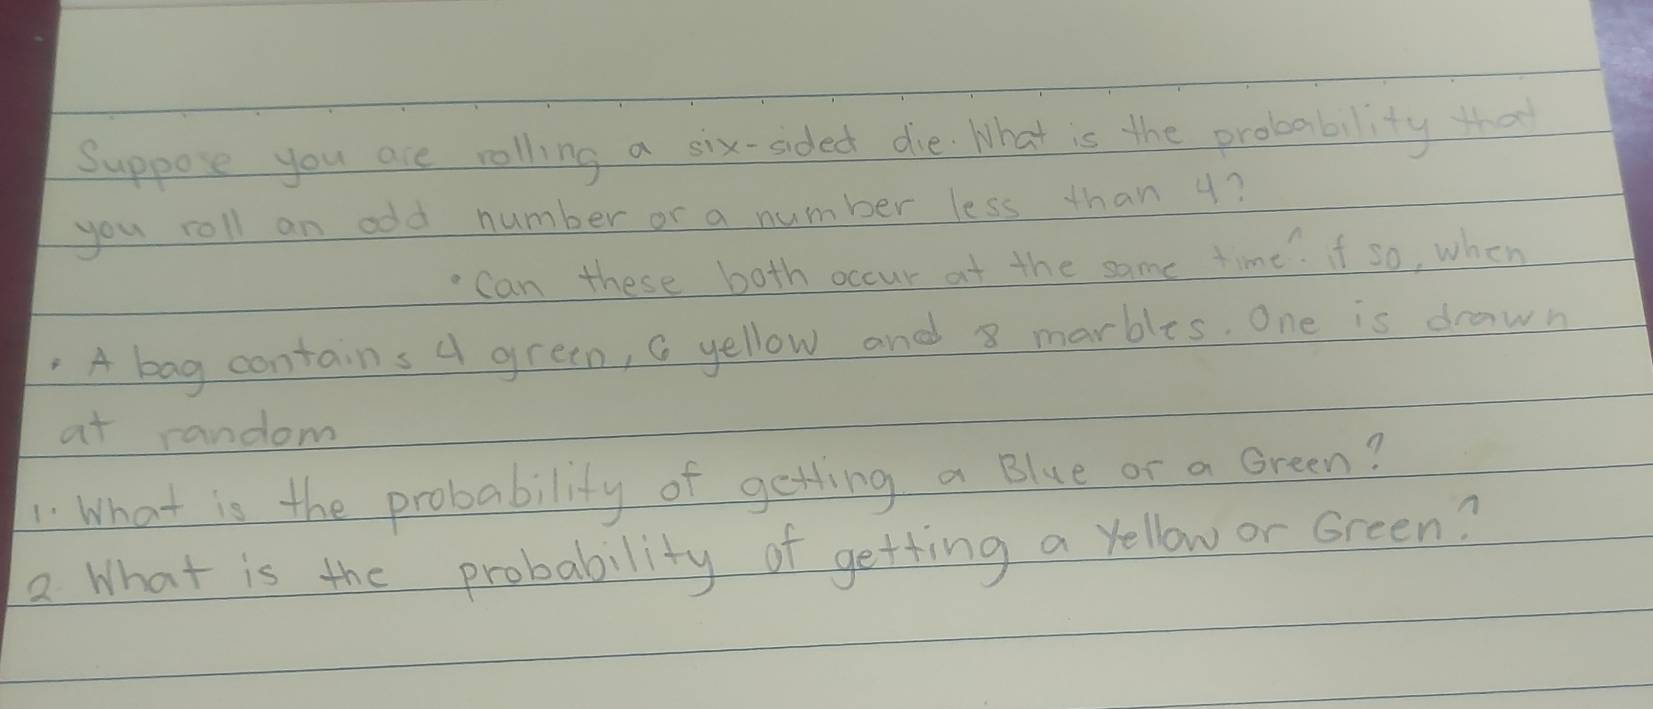 Suppose you are rolling a six-sided die. What is the probability that
you roll an odd number or a number less than 4?
• Can these both occur at the same time? if so, when
• A bag contains 4 green, 6 yellow and 8 marbles. One is drawn
at random
1. What is the probability of getting a Blue or a Green?
2. What is the probability of getting a Yellow or Green?